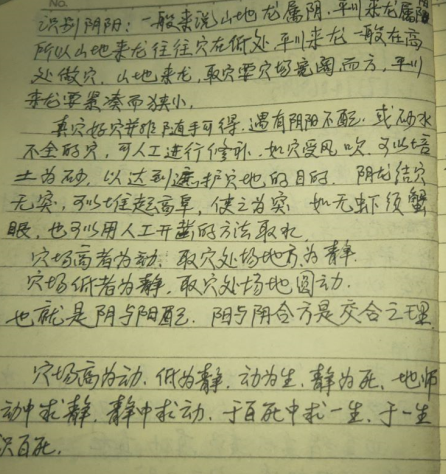 No.
识别阴阳：一般来说山地龙属阴，平川来龙属阳
所以山地来龙往往穴在低处，平川来龙一般在高
处做穴，山地来龙，取穴要穴场宽阔而方，平川
来龙要紧凑而狭小。
真穴好穴并非随手可得，遇有阴阳不配，或砂水
不全的穴，可人工进行修补，如穴受风吹，可以培
土为砂，以达到遮护穴地的目的，阴龙结穴
无突，可以堆起高阜，使之为突，如无虾须蟹
眼，也可以用人工开凿的方法取水。
穴场高者为动，取穴处场地方为静。
穴场低者为静，取穴处场地圆动。
也就是阴与阳配，阳与阴合方是交合之理
穴场高为动，低为静，动为生，静为死，地师
动中求静，静中求动，于百死中求一生，于一生
识百死。